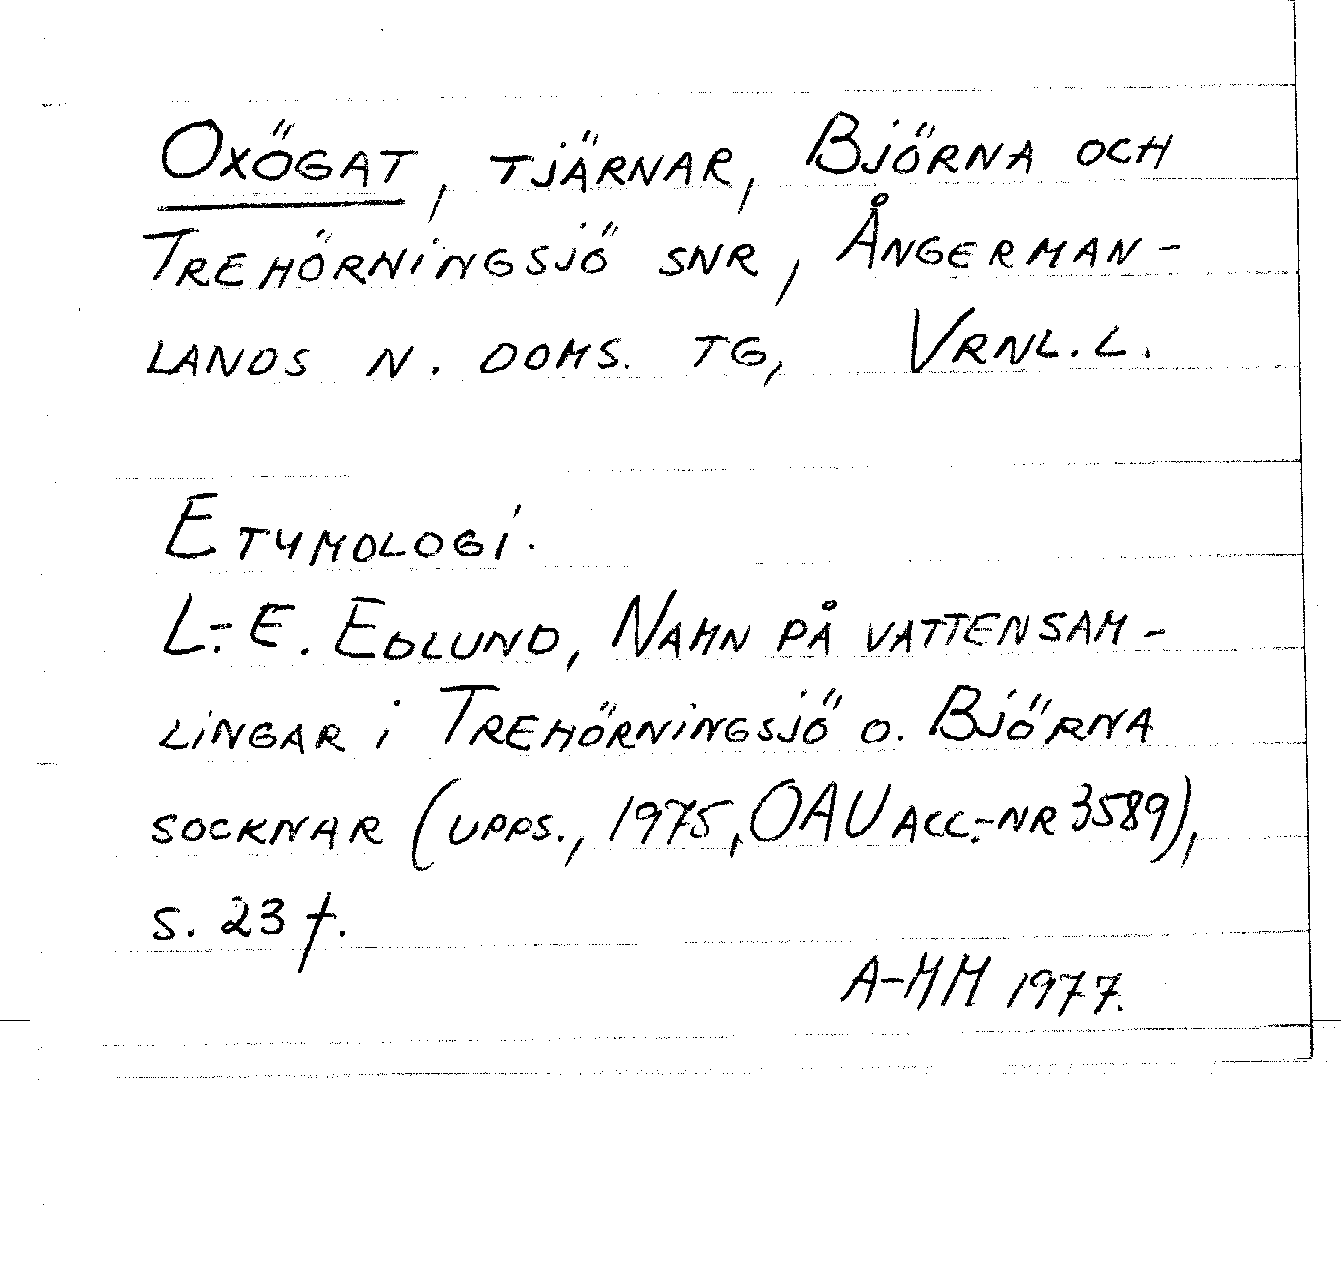 OXÖGAT, TJÄRNAR, BJÖRNA OCH
TREHÖRNINGSJÖ SNR, ÅNGERMAN-
LANDS N. DOMS. TG, VRNL. L.
ETYMOLOGI.
L.-E. EDLUND, NAMN PÅ VATTENSAM-
LINGAR i TREHÖRNINGSJÖ O. BJÖRNA
SOCKNAR (UPPS., 1975, OAU ACC.-NR 3589),
S. 23 f.
A-MM 1977.